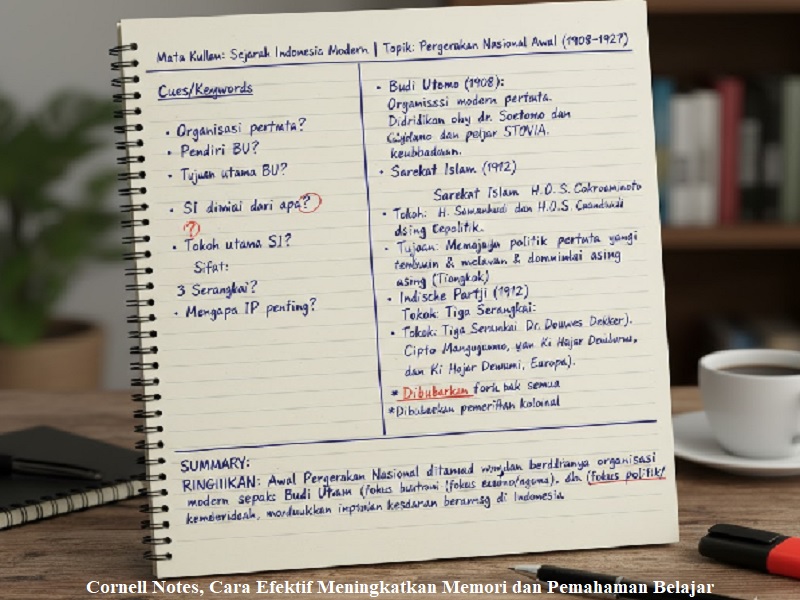 Mata Kuliam: Sejarah Indonesia Modern | Topik: Pergerakan Nasional Awal (1908-1927)
Cues/Keywords
• Organisasi pertnata?
• Pendiri BU?
• Tujuan utama BU?
• SI dimiai dari apa?
?
• Tokoh utama SI?
Sifat:
3 Serangkai?
• Mengapa IP penting?
• Budi Utomo (1908):
Organisssi modern pertnuta.
Didridikan oky dr. Soetomo dan
dan peljar STOVIA.
keubbadaan.
• Sarekat Islam (1912)
Sarekat Islam H.O.S. Cokroaminoto
• Tokoh: H. Samanhudi dan H.O.S.
dsing Cepolitik.
• Tujuan: Memajuju politik pertuta yangi
tembuin & melavan & domniulai asing
asing (Tiongkok)
• Indische Partji (1912)
Tokok: Tiga Serangkai:
• Tokok: Tiga Serankai Dr. Douwes Dekker).
Cipto Mangugcomo, yan Ki Hajar
dan Ki Hojar Dewumi, Europa).
* Dibubarkan forh bak semua
*Dibabarkan pemerithan kolonal
SUMMARY:
RINGIIIKAN: Awal Pergerakan Nasional ditamad berddrianya organisasi
modern sepaks Budi Utsam (fokus (fokus dla (fokus politik/
kemberidoah, kesdaran di Indonesia
Cornell Notes, Cara Efektif Meningkatkan Memori dan Pemahaman Belajar